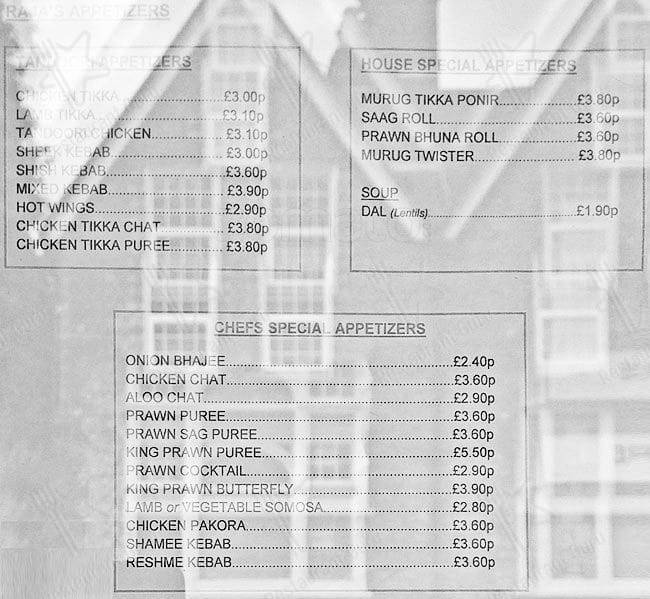 RAJA'S APPETIZERS
TANDOORI APPETIZERS
CHICKEN TIKKA....................£3.00p
LAMB TIKKA....................£3.10p
TANDOORI CHICKEN....................£3.10p
SHEEK KEBAB....................£3.00p
SHISH KEBAB....................£3.60p
MIXED KEBAB....................£3.90p
HOT WINGS....................£2.90p
CHICKEN TIKKA CHAT....................£3.80p
CHICKEN TIKKA PUREE....................£3.80p
HOUSE SPECIAL APPETIZERS
MURUG TIKKA PONIR....................£3.80p
SAAG ROLL....................£3.60p
PRAWN BHUNA ROLL....................£3.60p
MURUG TWISTER....................£3.80p
SOUP
DAL (Lentils)....................£1.90p
CHEFS SPECIAL APPETIZERS
ONION BHAJEE....................£2.40p
CHICKEN CHAT....................£3.60p
ALOO CHAT....................£2.90p
PRAWN PUREE....................£3.60p
PRAWN SAG PUREE....................£3.60p
KING PRAWN PUREE....................£5.50p
PRAWN COCKTAIL....................£2.90p
KING PRAWN BUTTERFLY....................£3.90p
LAMB or VEGETABLE SOMOSA....................£2.80p
CHICKEN PAKORA....................£3.60p
SHAMEE KEBAB....................£3.60p
RESHME KEBAB....................£3.60p